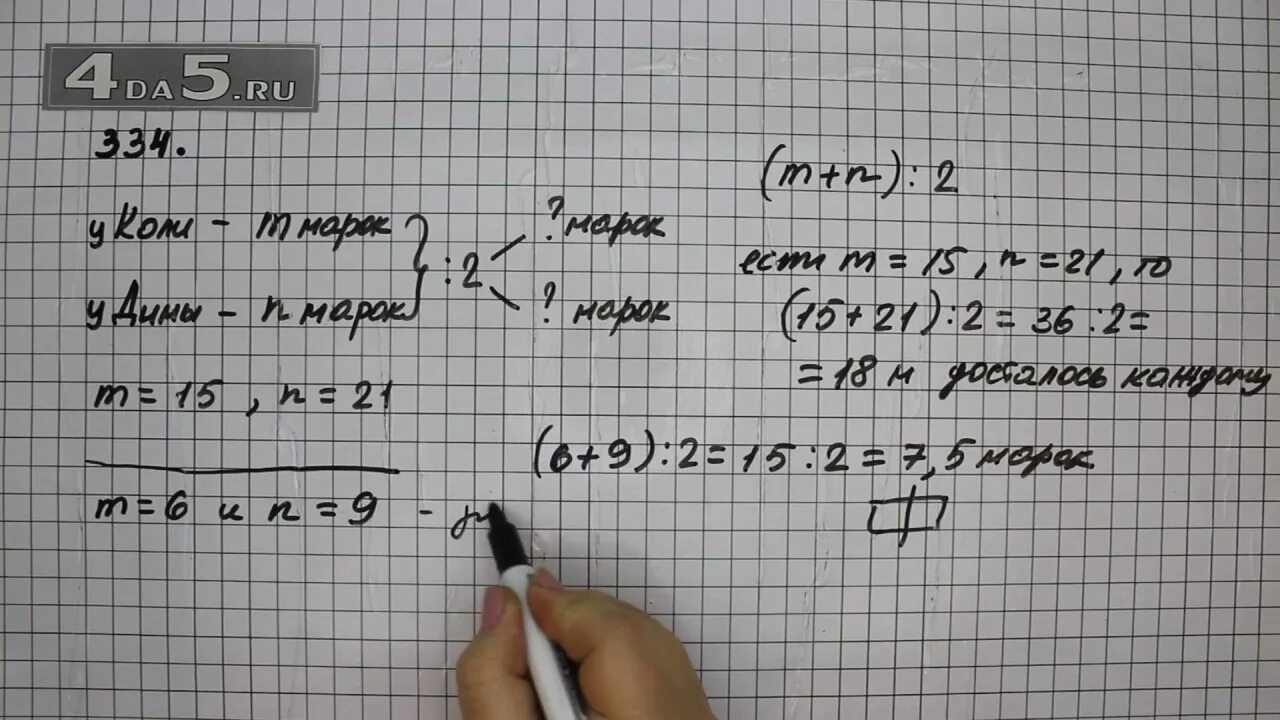 4DA5.RU
334.
у Коли - m марок
у Дины - n марок
:2
? марок
? марок
m = 15, n = 21
m = 6 и n = 9 -
(m+n):2
если m = 15, n = 21, то
(15+21):2 = 36:2=
= 18 м досталось каждому
(6+9):2=15:2=7,5 марок